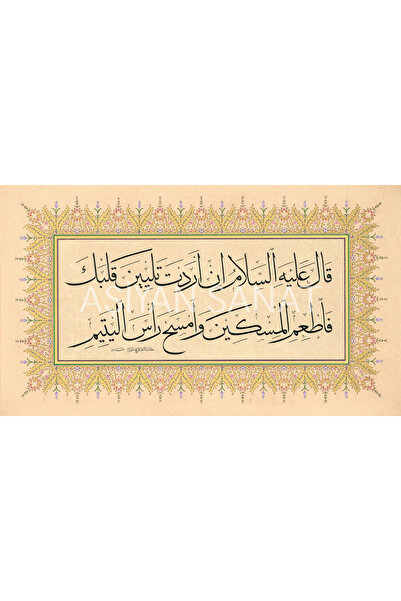 قال عليه السلام ان اردت تليين قلبك
فاطعم المسكين وامسح رأس اليتيم
ASIYAN SANAT